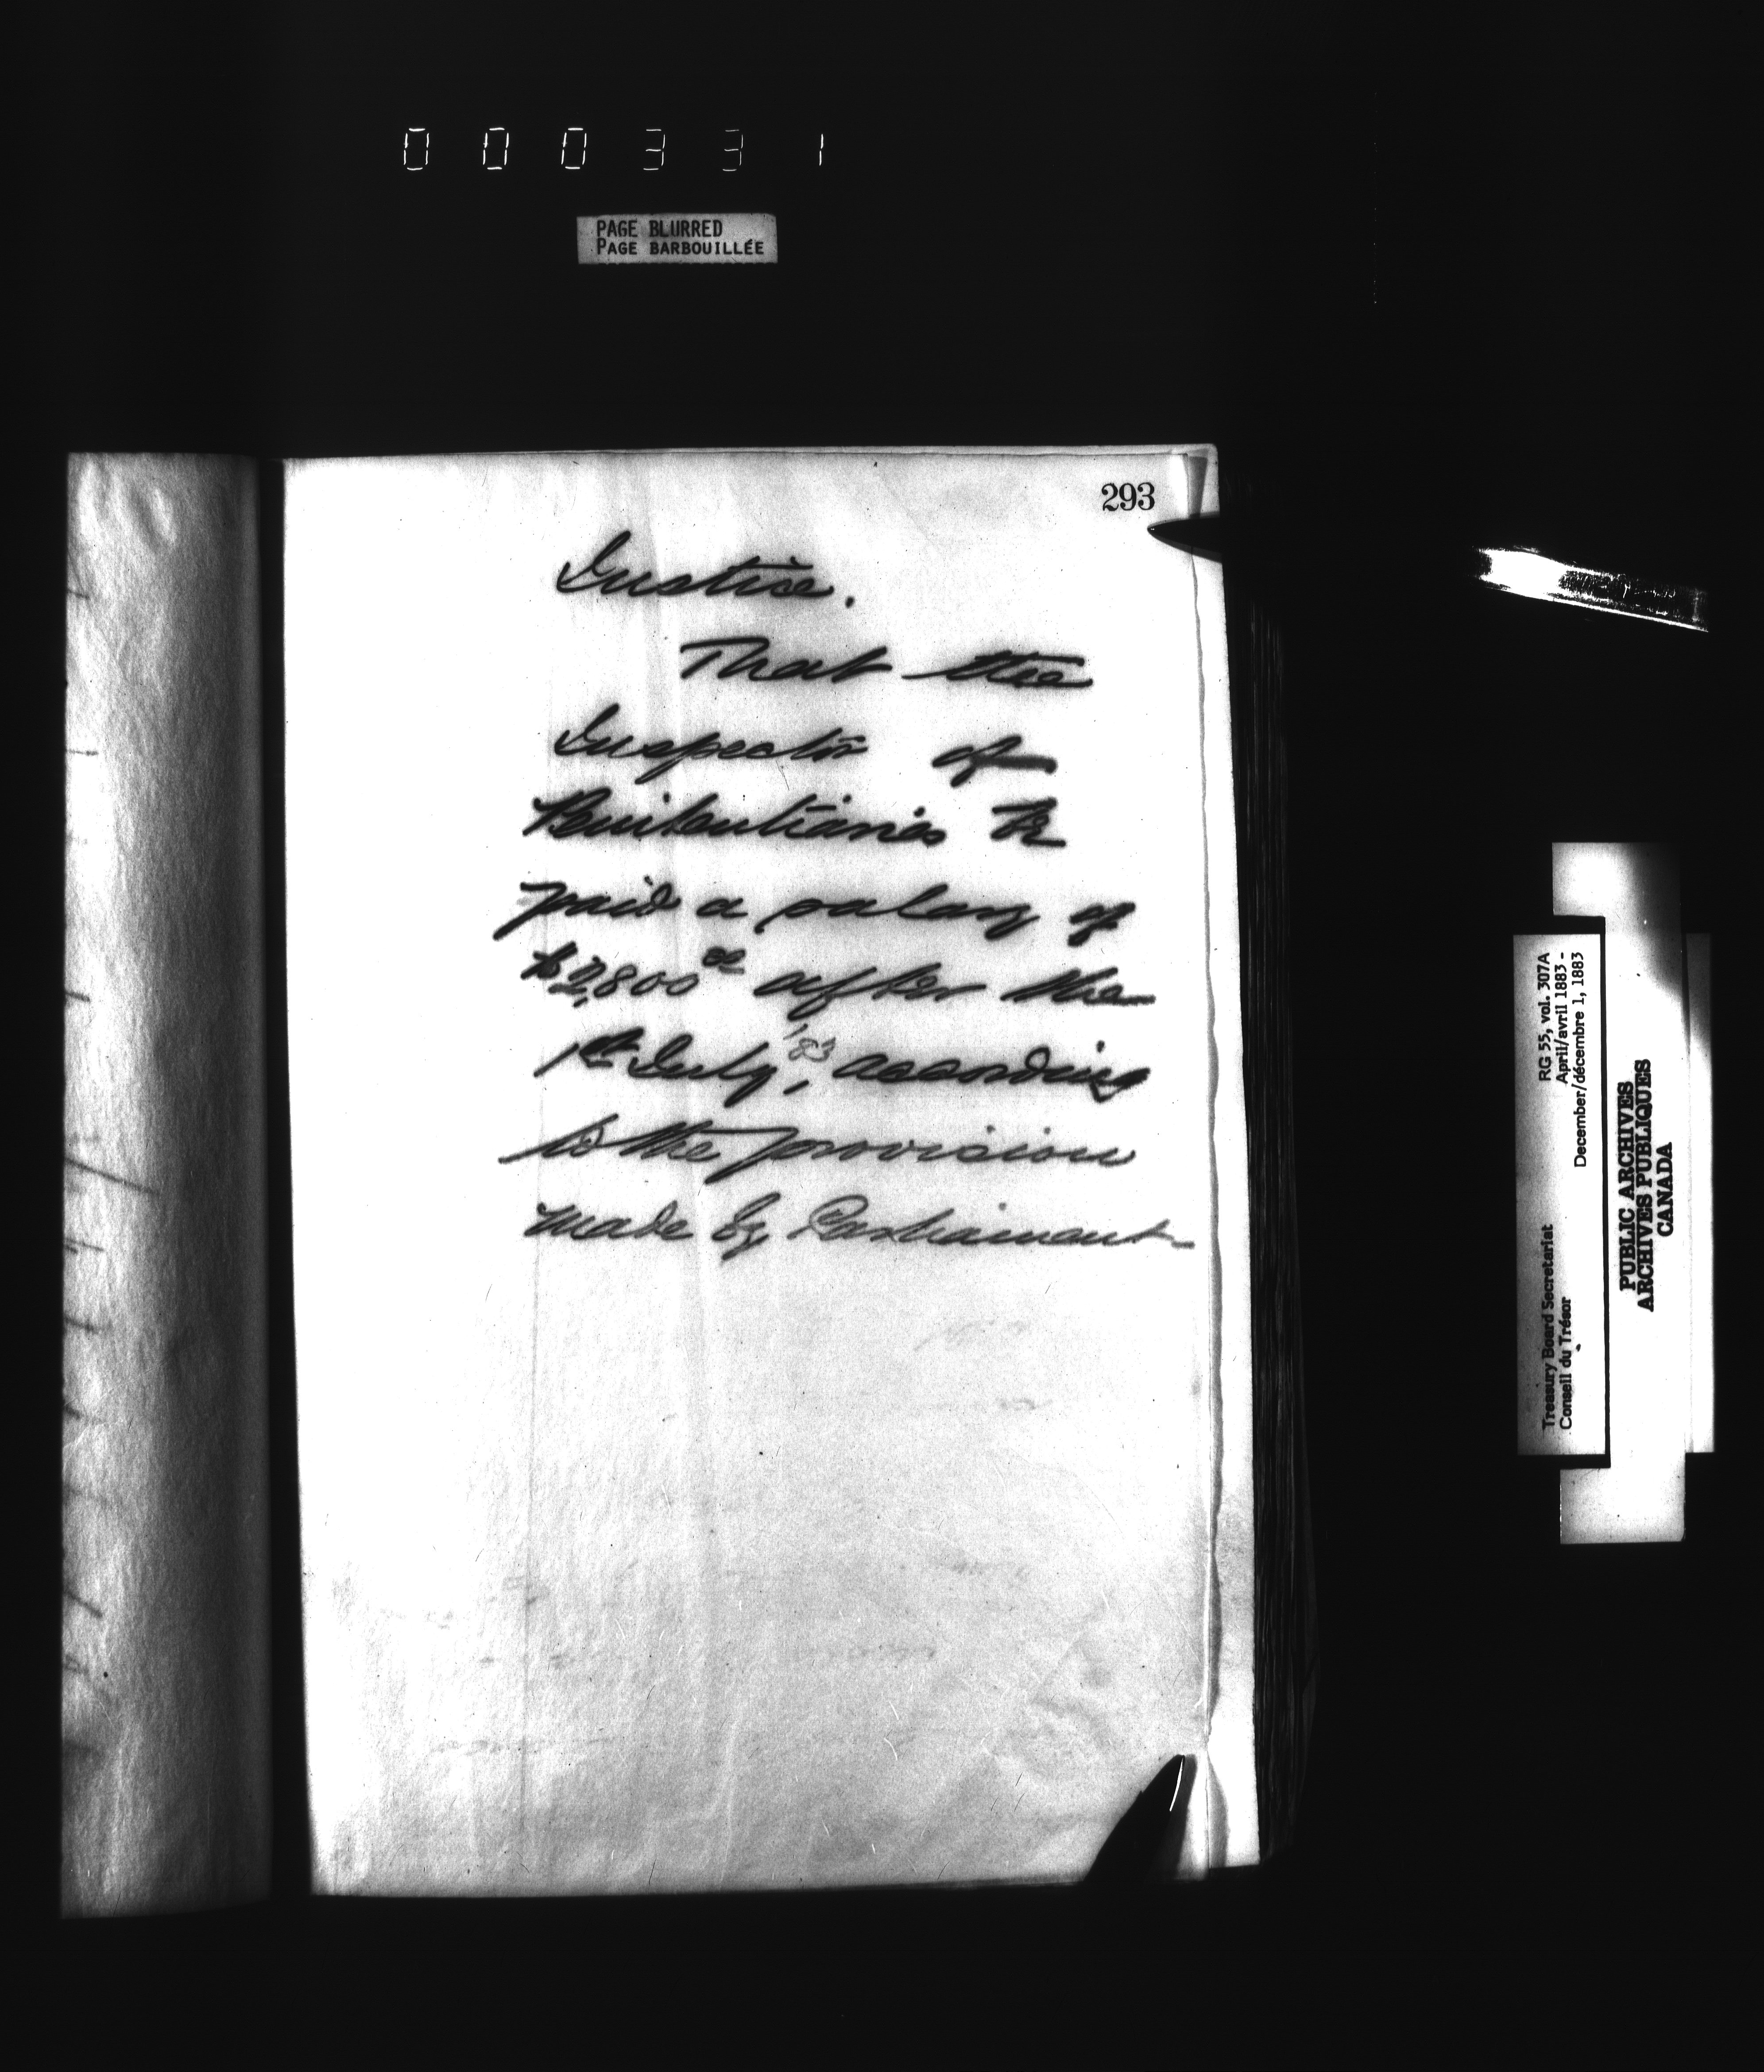 000331
PAGE BLURRED
PAGE BARBOUILLÉE
293
Justice.
That the
Inspector of
Penitentiaries be
paid a salary of
$2,800 00 after the
1st July, '83 according
to the provision
made by Parliament
RG 55, vol. 307A
April/avril 1883 -
December/décembre 1, 1883
Treasury Board Secretariat
Conseil du Trésor
PUBLIC ARCHIVES
ARCHIVES PUBLIQUES
CANADA